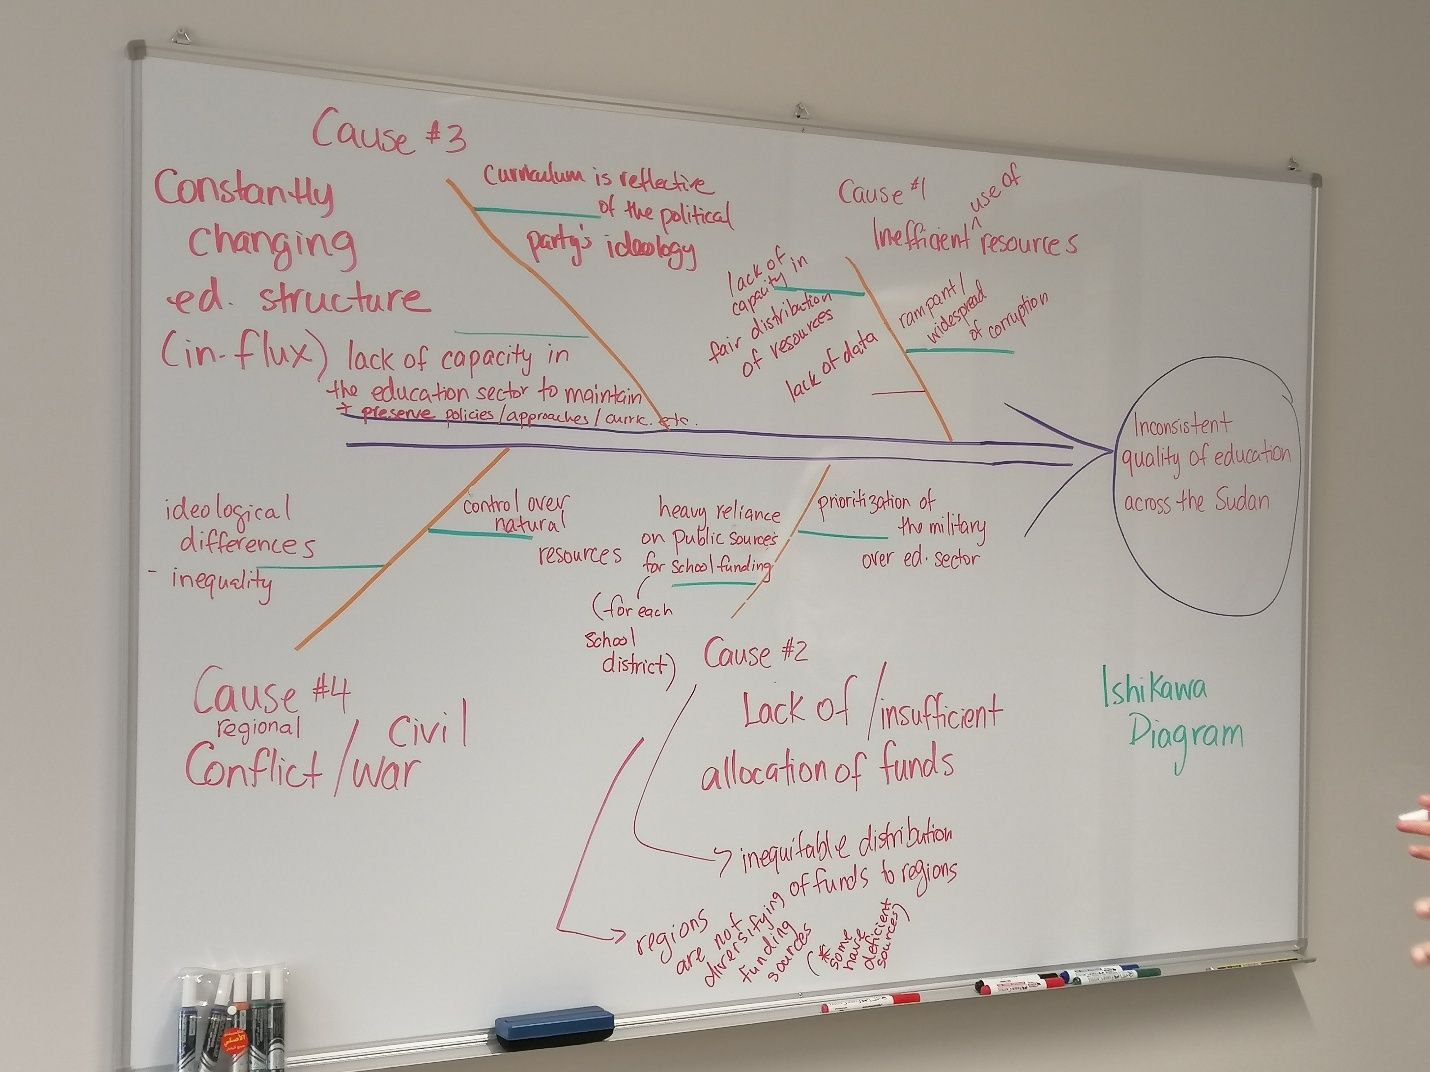 Cause #3
Constantly
changing
ed. structure
(in-flux)
curriculum is reflective
of the political
party's ideology
lack of capacity in
the education sector to maintain
+ preserve policies/approaches/curric. etc.
Cause #1
Inefficient ^ use of
resources
lack of
capacity in
fair distribution
of resources
lack of data
rampant/
widespread
of corruption
Inconsistent
quality of education
across the Sudan
ideological
differences
- inequality
control over
natural
resources
Cause #4
regional
Conflict / civil
war
heavy reliance
on public sources
for school funding
(for each
school
district)
prioritization of
the military
over ed. sector
Cause #2
Lack of /insufficient
allocation of funds
inequitable distribution
of funds to regions
regions
are not
diversifying
funding
sources
(*some
have
deficient
sources)
Ishikawa
Diagram